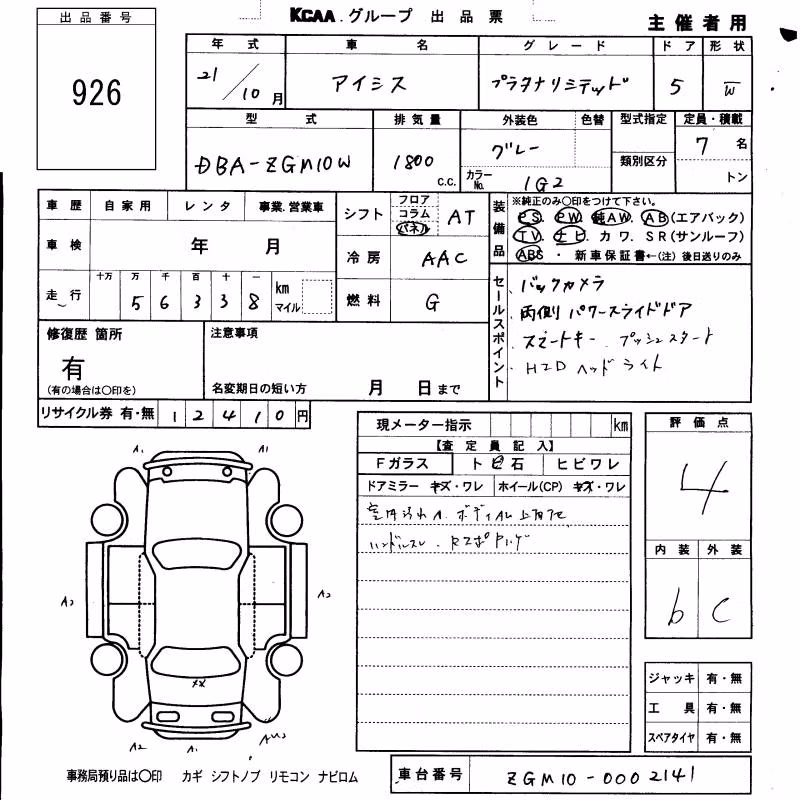 出品番号
926
KCAA.グループ 出品票
主催者用
年式 車名 グレード ドア 形状
21/10月 アイシス プラタナリミテッド 5 W
型式 排気量 外装色 色替 型式指定 定員・積載
DBA-ZGM10W 1800 c.c. グレー 7名
カラーNo. 1G2 類別区分 トン
車歴 自家用 レンタ 事業.営業車
車検 年 月
走行 十万 万 千 百 十 一
5 6 3 3 8 km マイル
シフト フロア コラム パネル AT
冷房 AAC
燃料 G
装備品
※純正のみ〇印をつけて下さい。
PS. PW. 純AW. AB(エアバック)
TV. ナビ. カワ. SR(サンルーフ)
ABS ・ 新車保証書←(注)後日送りのみ
セールスポイント
バックカメラ
両側パワースライドドア
スマートキー . プッシュスタート
HID ヘッドライト
修復歴 箇所
有
(有の場合は〇印を)
注意事項
名変期日の短い方 月 日まで
リサイクル券 有・無 1 2 4 1 0 円
現メーター指示 km
【査定員記入】
Fガラス トビ石 ヒビワレ
ドアミラー キズ・ワレ ホイール(CP) キズ・ワレ
ハンドルスレ.
評価点
4
内装 外装
b C
ジャッキ 有・無
工具 有・無
スペアタイヤ 有・無
A1 A1
A2 A2
A2 A1
事務局預り品は〇印 カギ シフトノブ リモコン ナビロム
車台番号 ZGM10-0002141